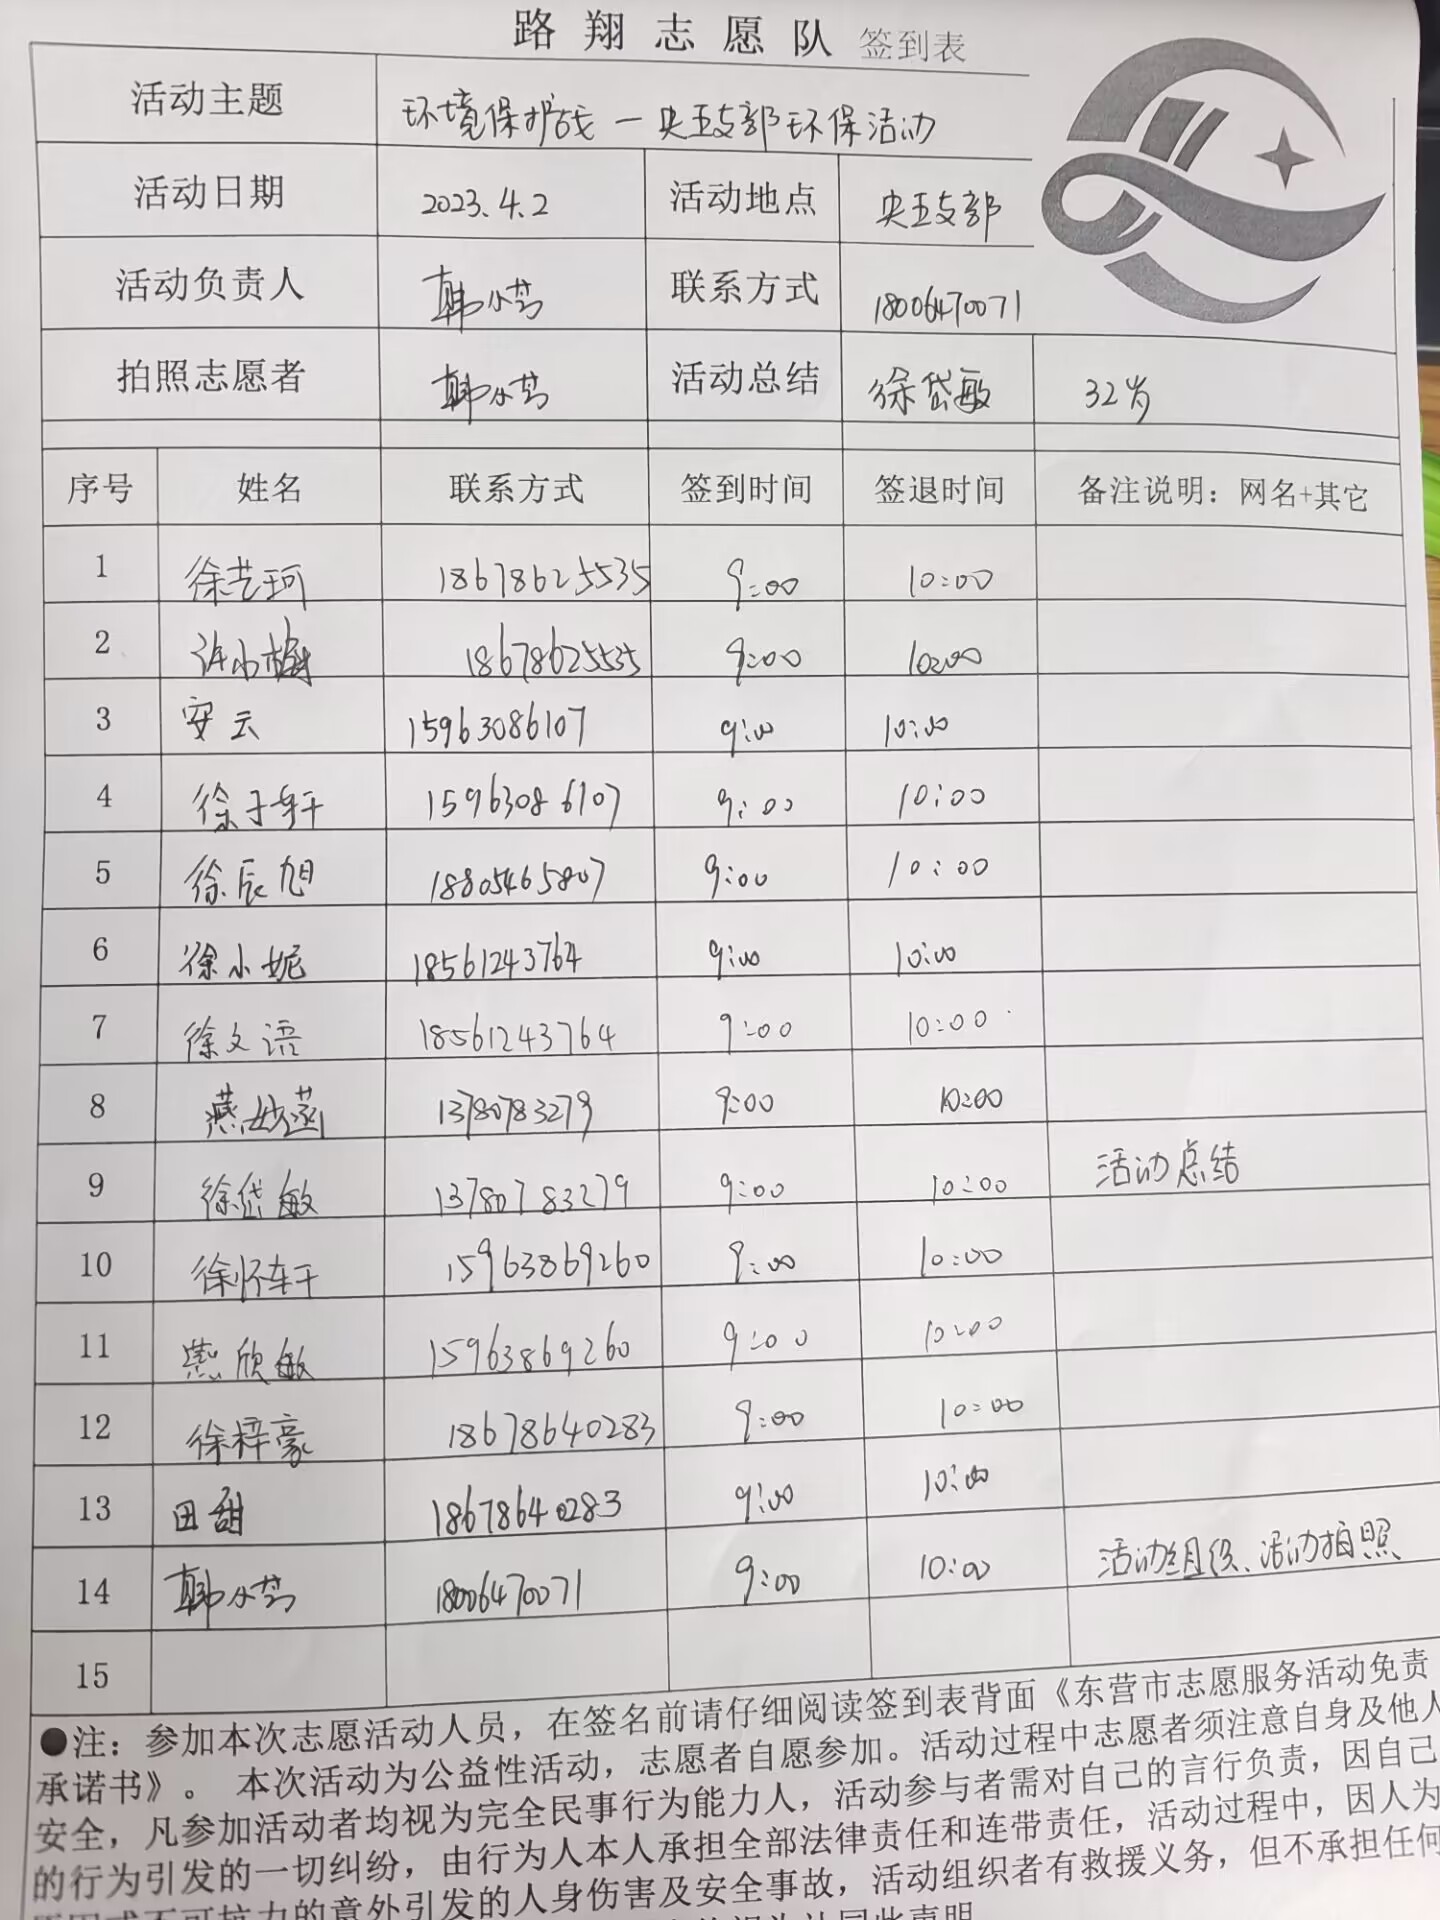 路翔志愿队 签到表
活动主题 环境保护战一央五支部环保活动
活动日期 2023.4.2 活动地点 央五支部
活动负责人 韩小芳 联系方式 18006470071
拍照志愿者 韩小芳 活动总结 徐岱敏 32岁
序号 姓名 联系方式 签到时间 签退时间 备注说明：网名+其它
1 徐艺珂 18678625535 9:00 10:00
2 许小梅 18678625535 9:00 10:00
3 安云 15963086107 9:00 10:00
4 徐子轩 15963086107 9:00 10:00
5 徐辰旭 18805465807 9:00 10:00
6 徐小妮 18561243764 9:00 10:00
7 徐文语 18561243764 9:00 10:00
8 燕妙涵 13780783279 9:00 10:00
9 徐岱敏 13780783279 9:00 10:00 活动总结
10 徐怀轩 15963869260 9:00 10:00
11 燕欣敏 15963869260 9:00 10:00
12 徐梓豪 18678640283 9:00 10:00
13 田甜 18678640283 9:00 10:00
14 韩小芳 18006470071 9:00 10:00 活动组织、活动拍照
15
●注：参加本次志愿活动人员，在签名前请仔细阅读签到表背面《东营市志愿服务活动免责
承诺书》。 本次活动为公益性活动，志愿者自愿参加。活动过程中志愿者须注意自身及他人
安全，凡参加活动者均视为完全民事行为能力人，活动参与者需对自己的言行负责，因自己
的行为引发的一切纠纷，由行为人本人承担全部法律责任和连带责任，活动过程中，因人为
原因或不可抗力的意外引发的人身伤害及安全事故，活动组织者有救援义务，但不承担任何